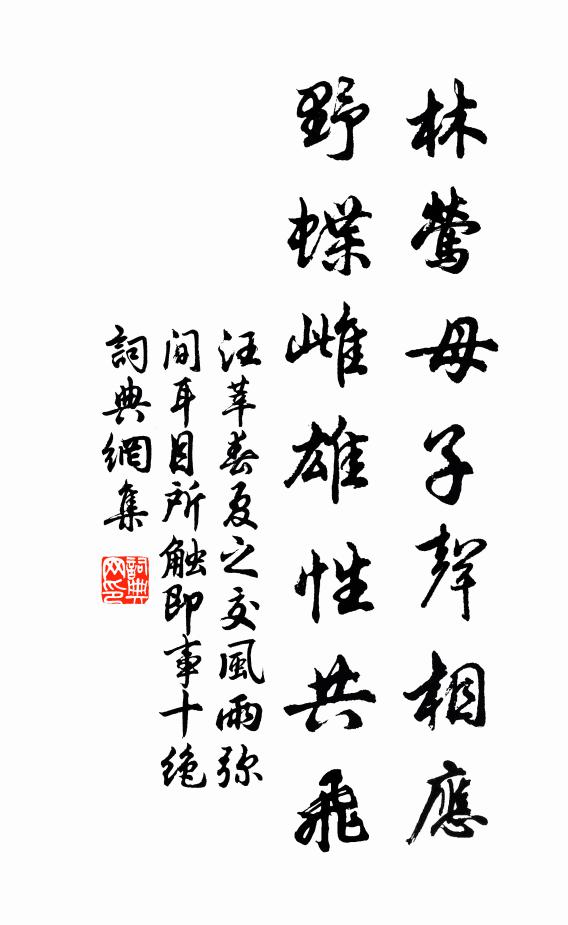 林鶯母子聲相應
野蝶雌雄性共飛
汪莘春夏之交風雨弥
间耳目所触即事十绝
詞典網集
詞典
网印